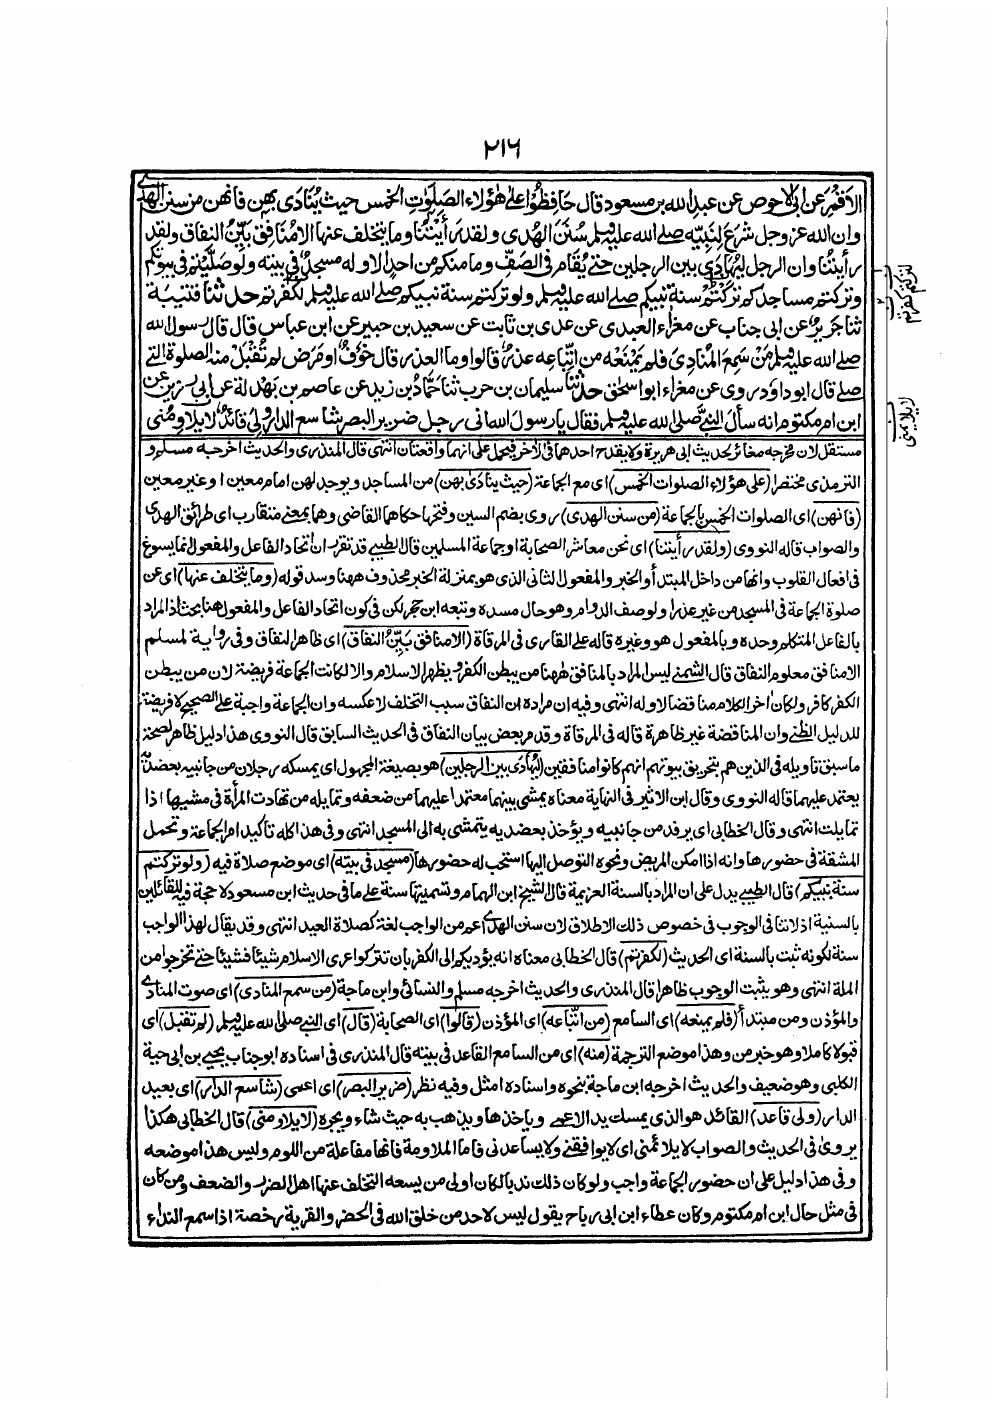 ٢١٦
الاقمر عن ابى الاحوص عن عبد الله بن مسعود قال حَافِظُوا على هٰؤلاء الصَّلَوٰتِ الخمس حيث يُنَادَى بهن فانهن من سنن الهدى
وان الله عز وجل شرع لِنَبِيِّه صلى الله عليه وسلم سُنَنَ الهُدى ولقد رَأيْتُنَا وما يتخلف عنها الا منافق بَيِّنُ النفاق ولقد
رأيتُنا وان الرجل لَيُهَادٰى بين الرجلين حتى يُقَام فى الصَّفّ وما منكم من احد الا وله مسجدٌ فى بيته ولو صلَّيتم فى بيوتكم
وتركتم مساجدكم تركتُم سنة نبيكم صلى الله عليه وسلم ولو تركتم سنة نبيكم صلى الله عليه وسلم لكفرتم حدثنا قتيبة
ثنا جريرٌ عن ابى جناب عن مغراء العبدى عن عدى بن ثابت عن سعيد بن جبير عن ابن عباس قال قال رسول الله
صلى الله عليه وسلم مَنْ سَمِعَ المُنَادِىَ فلم يَمْنَعْه من اتِّبَاعِه عذرٌ قالوا وما العذر قال خَوْفٌ او مَرَض لم تُقْبَلْ منه الصلوة التى
صلى قال ابو داود روى عن مغراء ابو اسحٰق حدثنا سليمان بن حرب ثنا حَمَّادُ بن زيد عن عاصم بن بَهْدَلة عن ابى رزين عن
ابن ام مكتوم انه سأل النبىَّ صلى الله عليه وسلم فقال يا رسول الله انى رجل ضرير البصر شاسع الدار ولى قائدٌ لا يلاومنى
لتركتم كفرتم
لا يلايمنى
مستقل لان مخرجه مغائر لحديث ابى هريرة ولا يقدح احدهما فى الأخر فيحمل على انهما واقعتان انتهى قال المنذرى والحديث اخرجه مسلم و
الترمذى مختصرا (على هؤلاء الصلوات الخمس) اى مع الجماعة (حيث ينادى بهن) من المساجد ويوجد لهن امام معين او غير معين
(فانهن) اى الصلوات الخمس بالجماعة (من سنن الهدى) روى بضم السين وفتحها حكاهما القاضى وهما بمعنى متقارب اى طرائق الهدى
والصواب قاله النووى (ولقد رأيتنا) اى نحن معاشر الصحابة او جماعة المسلمين قال الطيبى قد تقرر ان اتحاد الفاعل والمفعول انما يسوغ
فى افعال القلوب وانها من داخل المبتدأ والخبر والمفعول الثانى الذى هو بمنزلة الخبر محذوف ههنا وسد قوله (وما يتخلف عنها) اى عن
صلوة الجماعة فى المسجد من غير عذر او لوصف الدوام وهو حال مسده وتبعه ابن حجر لكن فى كون اتحاد الفاعل والمفعول هنا بحث اذ المراد
بالفاعل المتكلم وحده وبالمفعول هو وغيره قاله على القارى فى المرقاة (الا منافق بَيِّنُ النفاق) اى ظاهر النفاق وفى رواية لمسلم
الا منافق معلوم النفاق قال الشمنى ليس المراد بالمنافق ههنا من يبطن الكفر ويظهر الاسلام والا لكانت الجماعة فريضة لان من يبطن
الكفر كافر ولكان أخر الكلام مناقضا لاوله انتهى وفيه ان مراده ان النفاق سبب التخلف لا عكسه وان الجماعة واجبة على الصحيح لا فريضة
للدليل الظنى وان المناقضة غير ظاهرة قاله فى المرقاة وقد مر بعض بيان النفاق فى الحديث السابق قال النووى هذا دليل ظاهر لصحة
ما سبق تاويله فى الذين هم بتحريق بيوتهم انهم كانوا منافقين (ليهادى بين الرجلين) هو بصيغة المجهول اى يمسكه رجلان من جانبيه بعضديه
يعتمد عليهما قاله النووى وقال ابن الاثير فى النهاية معناه يمشى بينهما معتمدا عليهما من ضعفه وتمايله من تهادت المرأة فى مشيها اذا
تمايلت انتهى وقال الخطابى اى يرفد من جانبيه ويؤخذ بعضديه يتمشى به الى المسجد انتهى وفى هذا كله تاكيد امر الجماعة وتحمل
المشقة فى حضورها وانه اذا امكن المريض ونحوه التوصل اليها استحب له حضورها (مسجد فى بيته) اى موضع صلاة فيه (ولو تركتم
سنة نبيكم) قال الطيبى يدل على ان المراد بالسنة العزيمة قال الشيخ ابن الهمام وتسميتها سنة على ما فى حديث ابن مسعود لا حجة فيه للقائلين
بالسنية اذ لا تنافى الوجوب فى خصوص ذلك الاطلاق لان سنن الهدى اعم من الواجب لغة كصلاة العيد انتهى وقد يقال لهذا الواجب
سنة لكونه ثبت بالسنة اى الحديث (لكفرتم) قال الخطابى معناه انه يؤديكم الى الكفر بان تتركوا عرى الاسلام شيئا فشيئا حتى تخرجوا من
الملة انتهى وهو يثبت الوجوب ظاهرا قال المنذرى والحديث اخرجه مسلم والنسائى وابن ماجة (من سمع المنادى) اى صوت المنادى
والمؤذن ومن مبتدأ (فلم يمنعه) اى السامع (من اتباعه) اى المؤذن (قالوا) اى الصحابة (قال) اى النبى صلى الله عليه وسلم (لم تقبل) اى
قبولا كاملا وهو خبر من وهذا موضع الترجمة (منه) اى من السامع القاعد فى بيته قال المنذرى فى اسناده ابو جناب يحيى بن ابى حية
الكلبى وهو ضعيف والحديث اخرجه ابن ماجة بنحوه واسناده امثل وفيه نظر (ضرير البصر) اى اعمى (شاسع الدار) اى بعيد
الدار (ولى قائد) القائد هو الذى يمسك يد الاعمى وياخذها ويذهب به حيث شاء ويجره (لا يلاومنى) قال الخطابى هكذا
يروى فى الحديث والصواب لا يلائمنى اى لا يوافقنى ولا يساعدنى فاما الملاومة فانها مفاعلة من اللوم وليس هذا موضعه
وفى هذا دليل على ان حضور الجماعة واجب ولو كان ذلك ندبا لكان اولى من يسعه التخلف عنها اهل الضرر والضعف ومن كان
فى مثل حال ابن ام مكتوم وكان عطاء ابن ابى رباح يقول ليس لاحد من خلق الله فى الحضر والقرية رخصة اذا سمع النداء